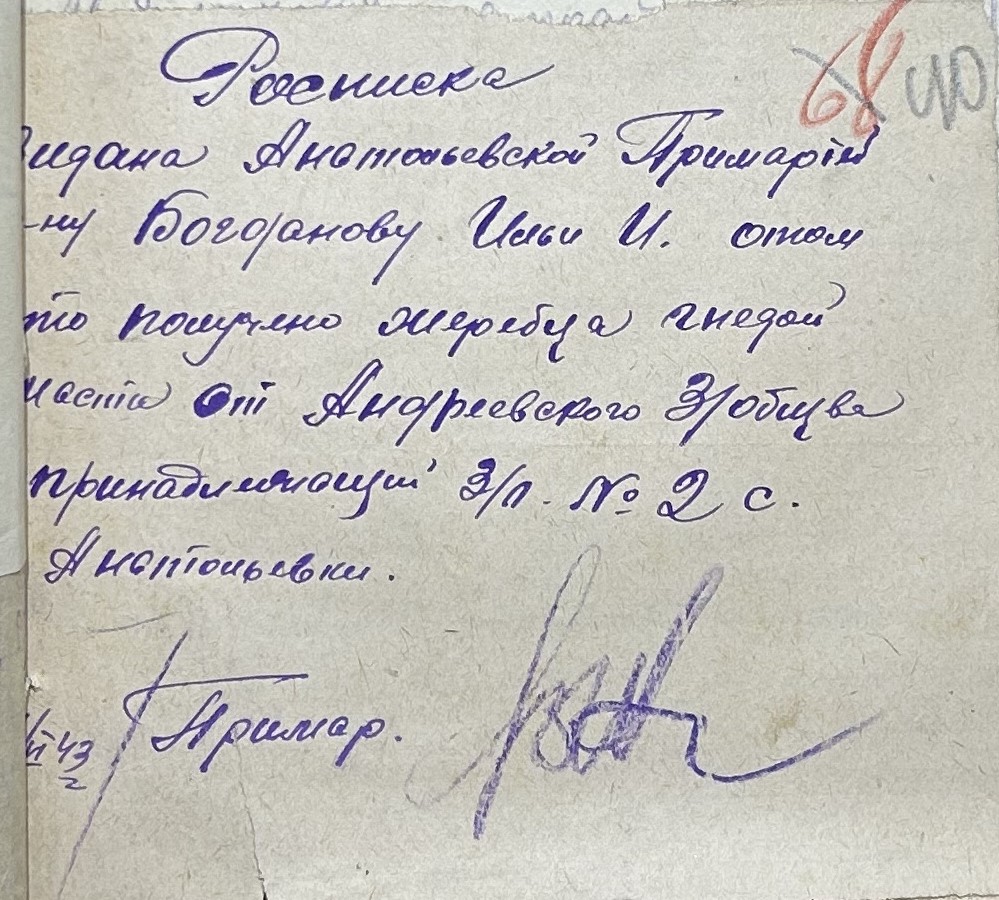 68 40
Росписка
Видана Анатольевской Примарій
-ну Богданову Ильи И. отом
что получено жеребца гнедой
масти от Андреевского З/общва
принадлежащий З/п. № 2 с.
Анатольевки.
Примар.
43 г